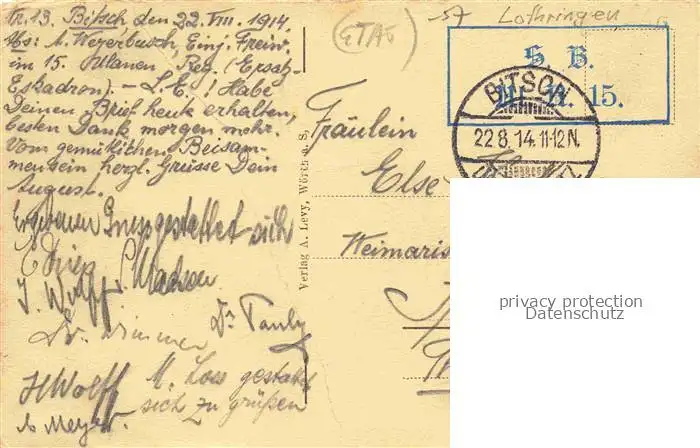 Nr. 13. Bitsch den 22. VIII. 1914.
Abs: A. Weyerbusch, Einj. Freiw.
im 15. Ulanen Reg. (Ersatz-
Eskadron). – L. E.! Habe
Deinen Brief heute erhalten,
besten Dank morgen mehr.
Vom gemütlichen Beisam-
mensein herzl. Grüsse Dein
August.
Ergebenen Gruss gestattet sich
J. Wolff
Dr. Pauly
Dr. Wimmer
H Wolff
M. Loss gestattet
sich zu grüßen
Meyer.
Verlag A. Levy, Wörth a. S.
ETAG
57 Lothringen
S. B.
15.
BITSCH
22 8. 14. 11-12 N.
Fräulein
Else
Weimaris
privacy protection
Datenschutz